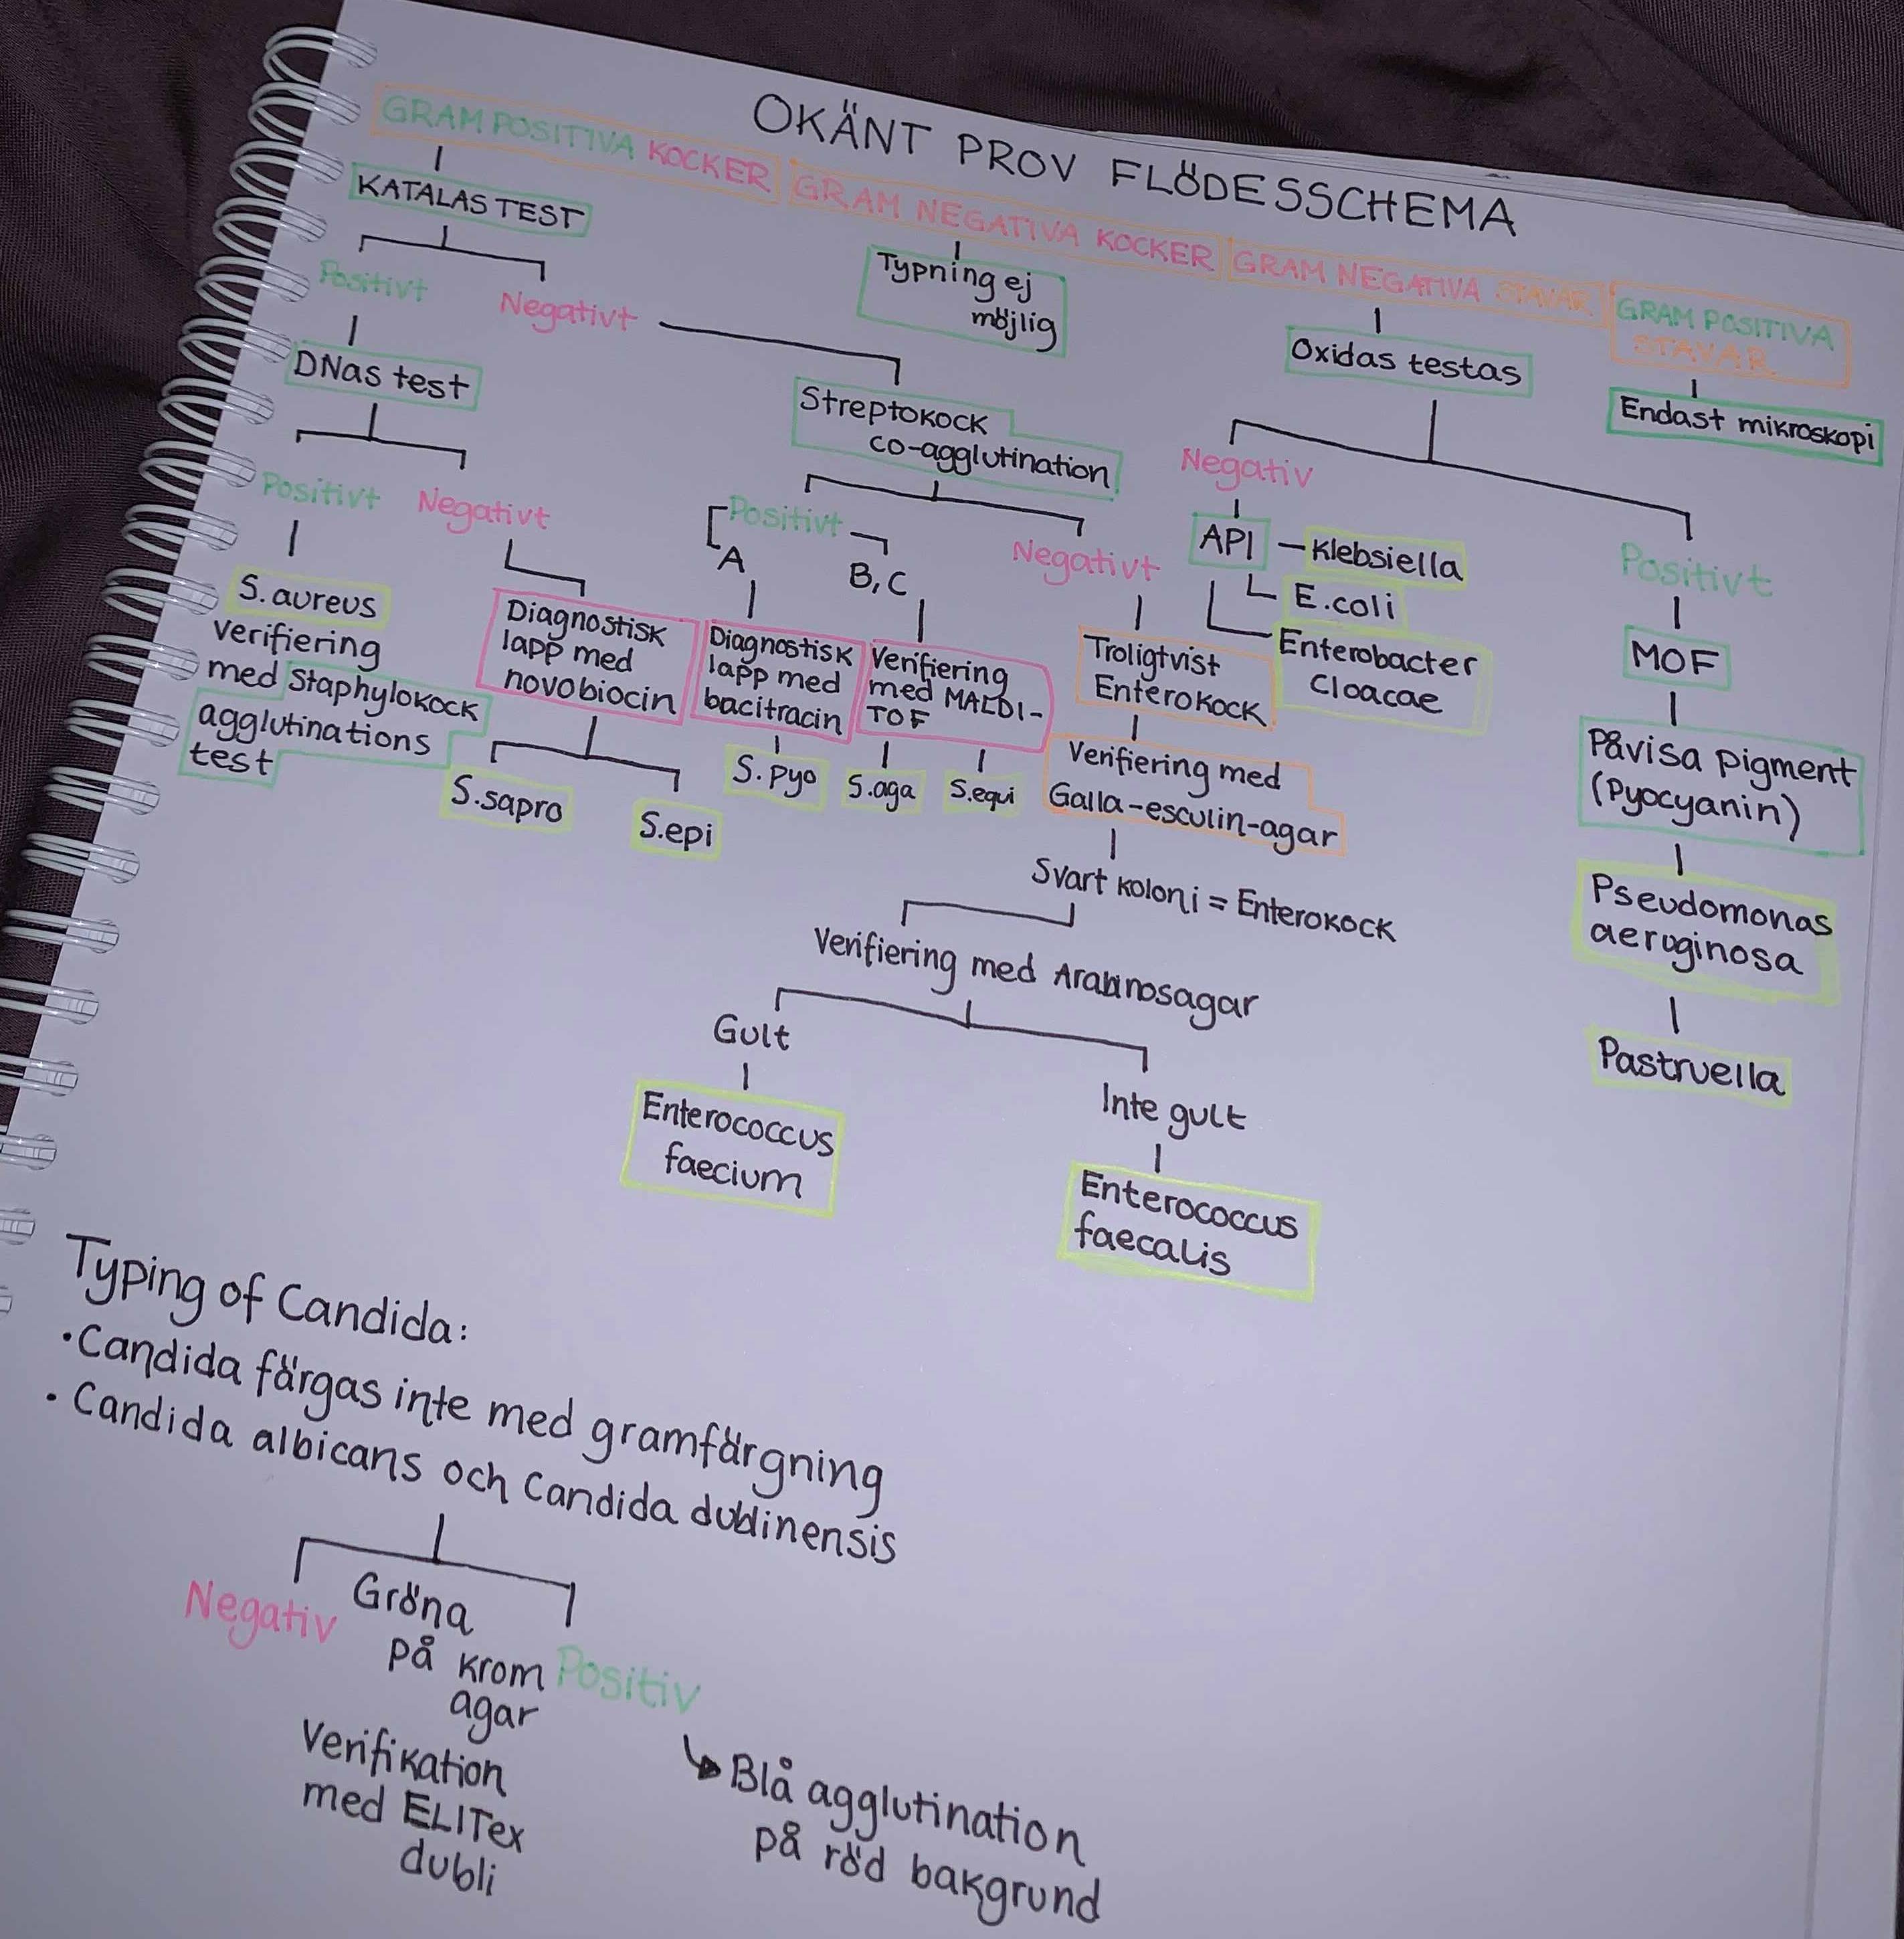 OKÄNT PROV FLÖDESSCHEMA
GRAM POSITIVA KOCKER
KATALAS TEST
Positivt
Negativt
DNas test
Positivt
Negativt
S.aureus
verifiering
med Staphylokock
agglutinations
test
Diagnostisk
lapp med
novobiocin
S.sapro
S.epi
Streptokock
co-agglutination
Positivt
A
B, C
Negativt
Diagnostisk
lapp med
bacitracin
S. pyo
Verifiering
med MALDI-
TOF
S.aga
S.equi
Troligtvist
Enterokock
Verifiering med
Galla-esculin-agar
Svart koloni = Enterokock
Verifiering med Arabinosagar
Gult
Enterococcus
faecium
Inte gult
Enterococcus
faecalis
GRAM NEGATIVA KOCKER
Typning ej
möjlig
GRAM NEGATIVA STAVAR
Oxidas testas
Negativ
API
- Klebsiella
E.coli
Enterobacter
cloacae
Positivt
MOF
Påvisa pigment
(Pyocyanin)
Pseudomonas
aeruginosa
Pastruella
GRAM POSITIVA
STAVAR
Endast mikroskopi
Typing of Candida:
• Candida färgas inte med gramfärgning
• Candida albicans och Candida dublinensis
Negativ
Gröna
på krom
agar
Positiv
Verifikation
med ELITex
dubli
Blå agglutination
på röd bakgrund